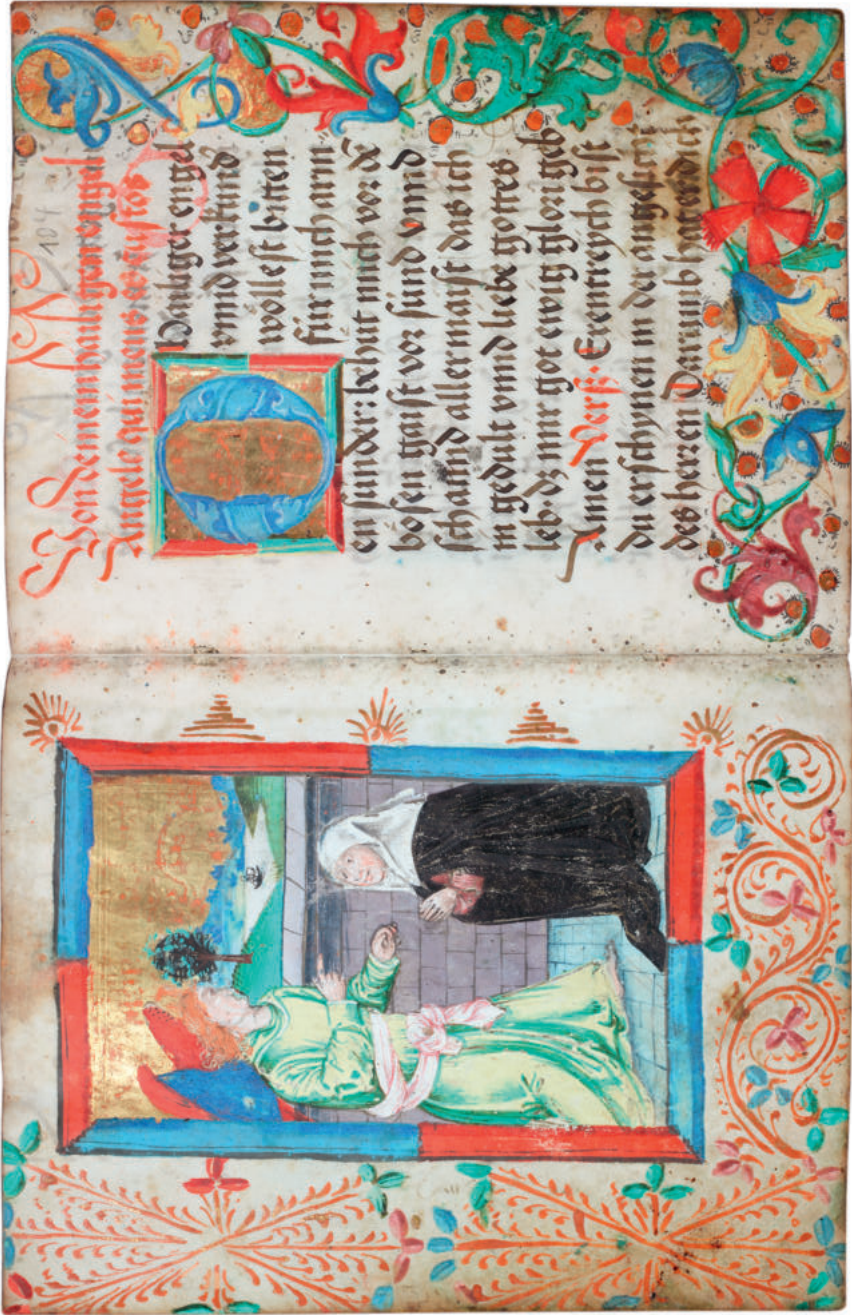 104
Von deinem hailigen engel
Angele qui meus es custos
O Hailiger engel
vnnd verkünd
wöllest bitten
für mich arm
en sünder: behüt mich vor dē
bösen gaist vor sünd vnnd
schannd aller maist das ich
in gedult vnnd liebe gottes
leb. dz mir got ewig glori geb
Amen Verß. Erentreych bist
du erschynen in der angesicht
des herren Darumb hat er dich